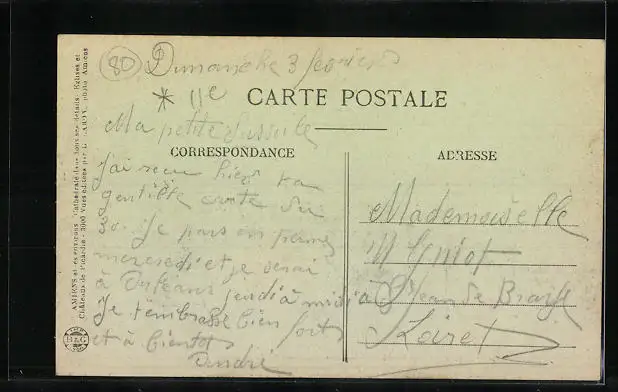 80 Dimanche 3 février
* 11e
CARTE POSTALE
Ma petite
CORRESPONDANCE
ADRESSE
J'ai reçu hier ta
gentille carte du
30. Je pars en perme
mercredi et je serai
à Orléans jeudi à midi
Je t'embrasse bien fort
et à bientôt
André
Mademoiselle
M Guiot
à St Jean de Braye
Loiret
AMIENS et ses environs. Cathédrale dans tous ses détails. Eglises et
Châteaux de Picardie. 3000 Vues éditées par L. CARON, photo Amiens
B&G